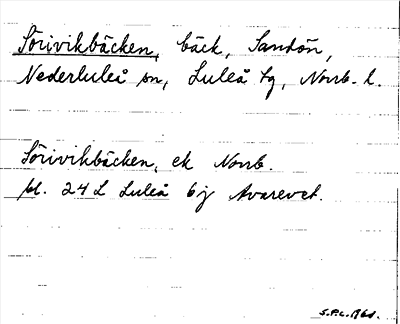 Sörivikbäcken, bäck, Sandön,
Nederluleå sn, Luleå tg, Norrb. l.
Sörivikbäcken, ek Norrb.
bl. 24 L Luleå 6j Avarevet.
S.P.L. 1961.